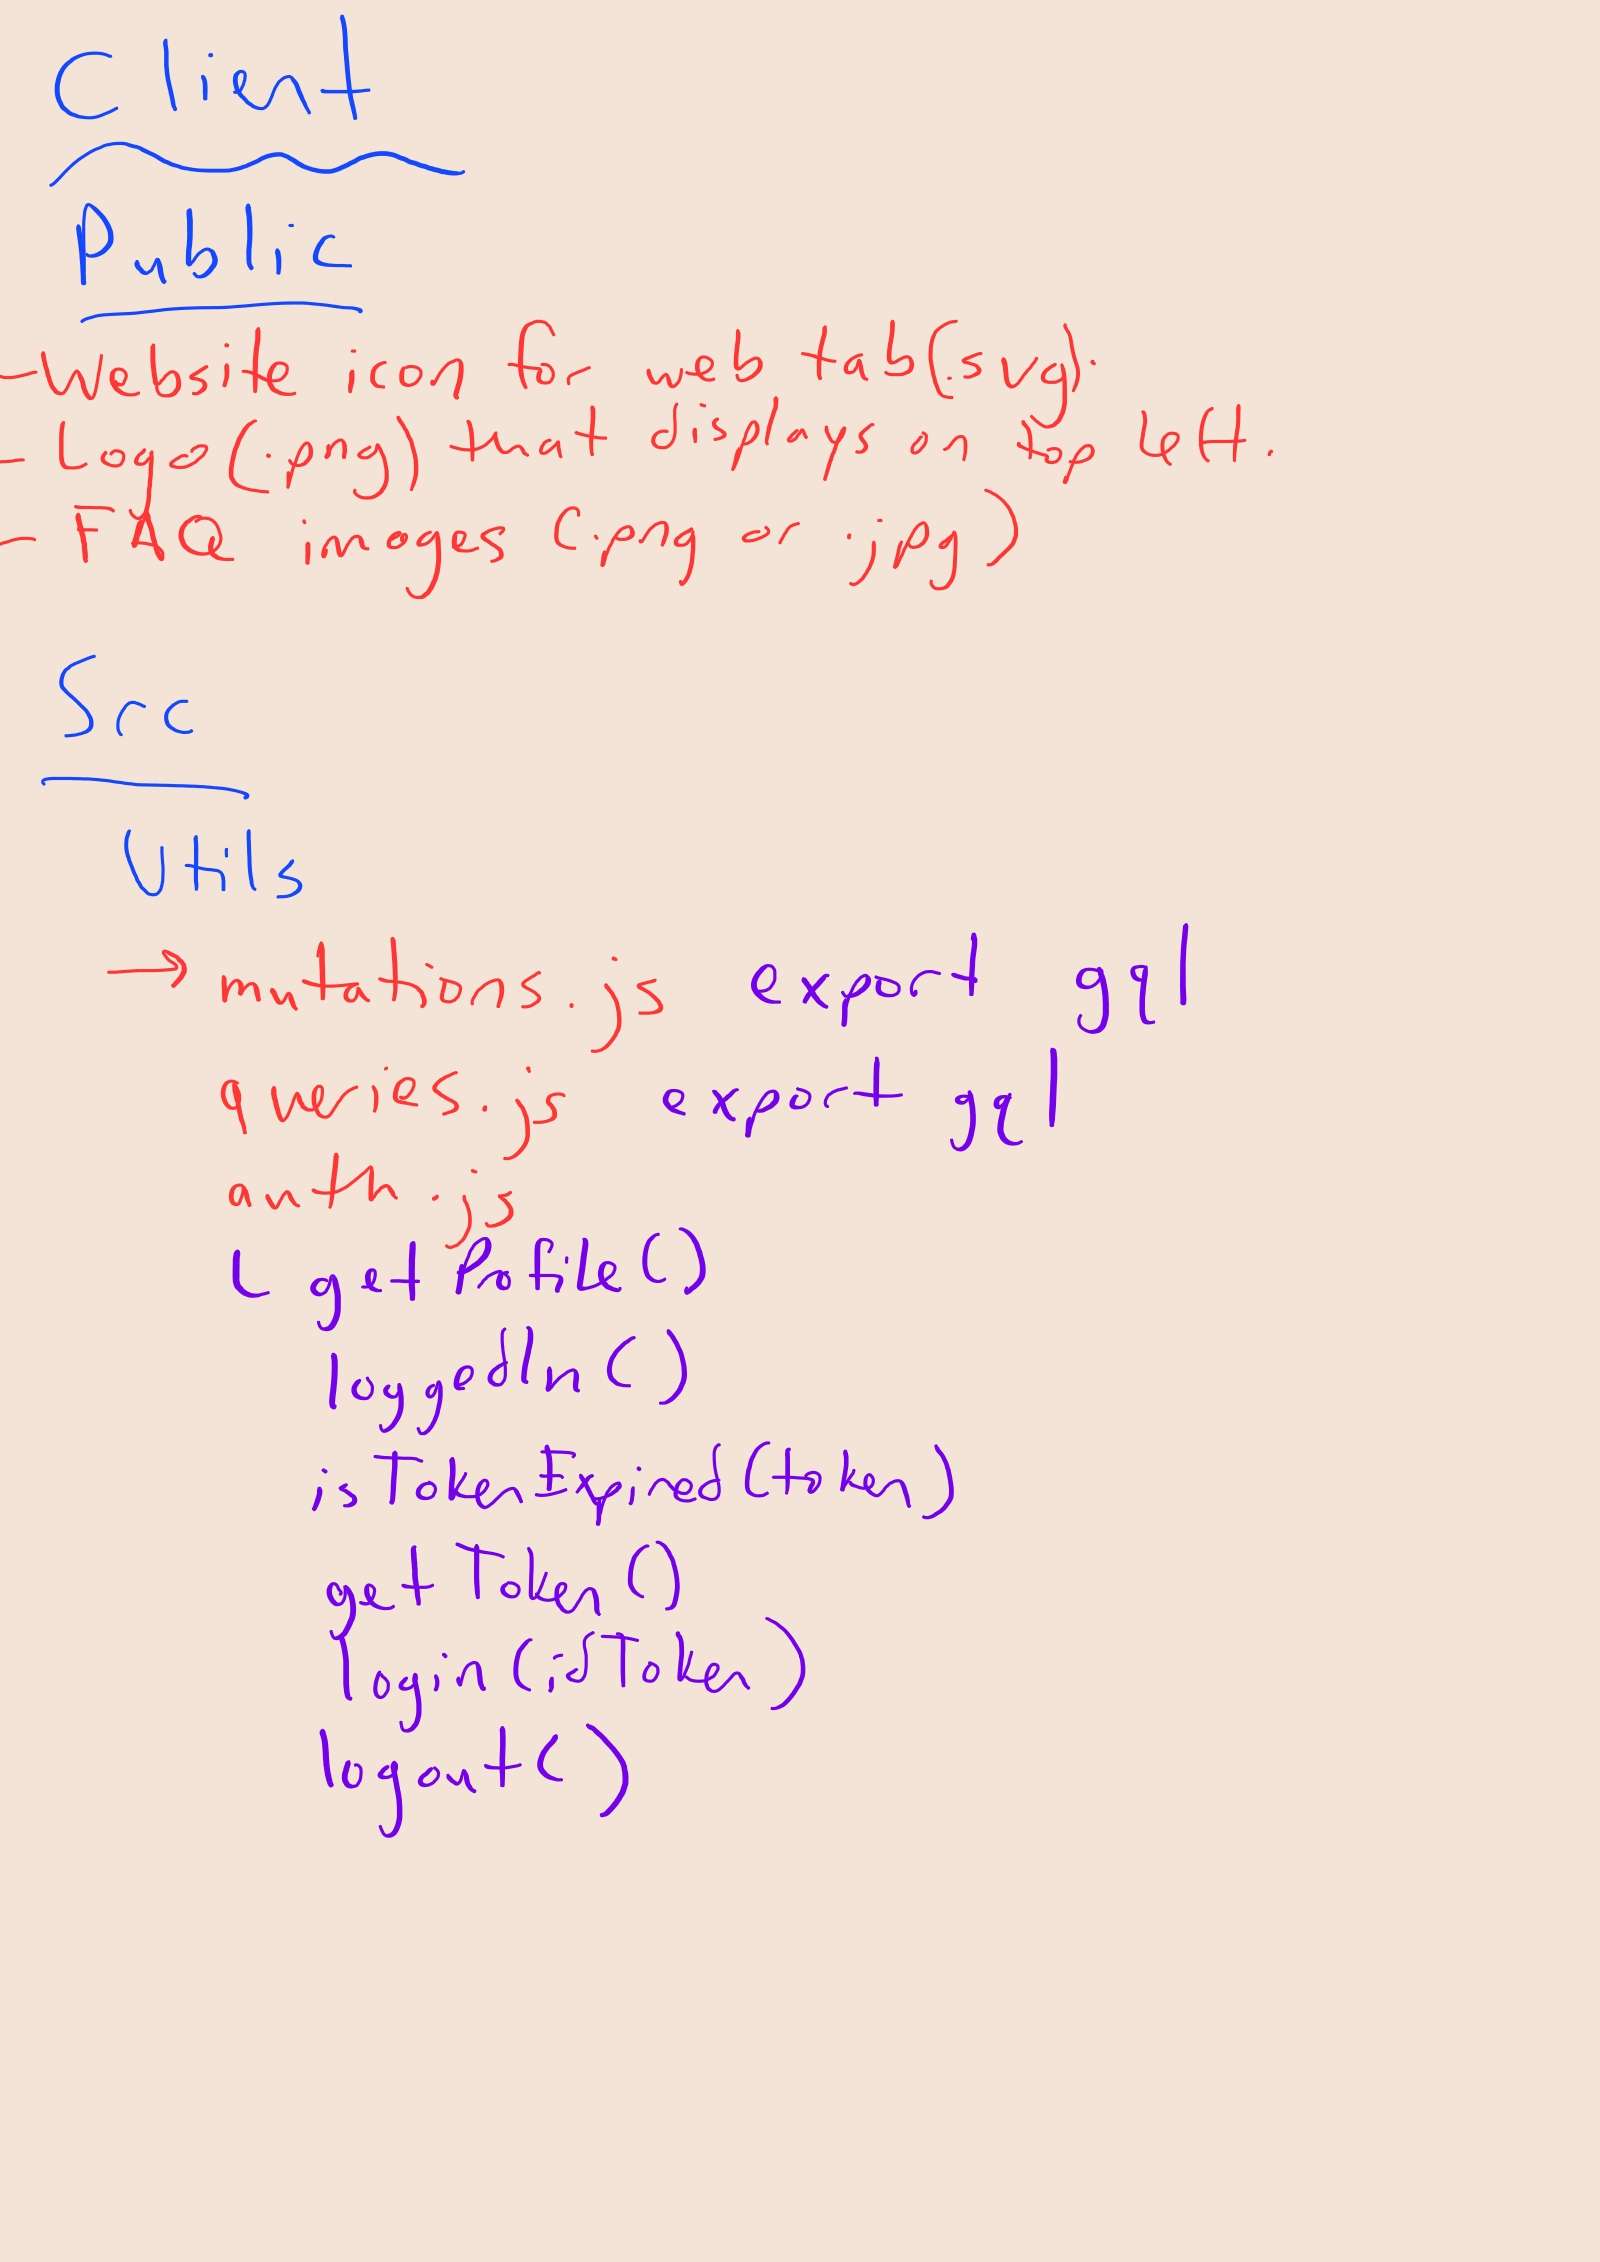 Client
Public
- Website icon for web tab(.svg).
- Logo(.png) that displays on top left.
- FAQ images (.png or .jpg)
Src
Utils
→ mutations.js export gql
queries.js export gql
auth.js
getProfile()
loggedIn()
isTokenExpired(token)
getToken()
login(idToken)
logout()